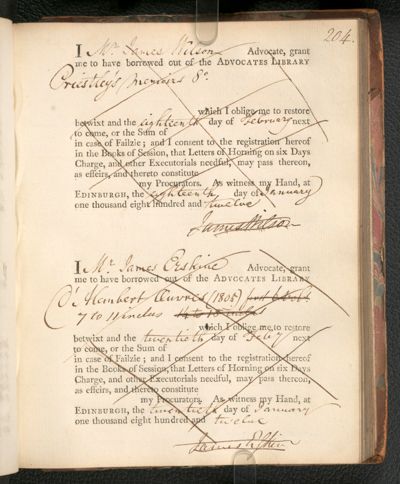 204.
I Mr. James Wilson Advocate, grant
me to have borrowed out of the ADVOCATES LIBRARY
Priestley's Memoirs 8o.
which I oblige me to restore
betwixt and the eighteenth day of February next
to come, or the Sum of
in case of Failzie; and I consent to the registration hereof
in the Books of Session, that Letters of Horning on six Days
Charge, and other Executorials needful, may pass thereon,
as effeirs, and thereto constitute
my Procurators. As witness my Hand, at
EDINBURGH, the eighteenth day of January
one thousand eight hundred and twelve
James Wilson
I, Mr. James Erskine Advocate, grant
me to have borrowed out of the ADVOCATES LIBRARY
D'Alembert Œuvres (1805)
7 to 11 inclus
which I oblige me to restore
betwixt and the twentieth day of Feby next
to come, or the Sum of
in case of Failzie; and I consent to the registration hereof
in the Books of Session, that Letters of Horning on six Days
Charge, and other Executorials needful, may pass thereon,
as effeirs, and thereto constitute
my Procurators. As witness my Hand, at
EDINBURGH, the twentieth day of January
one thousand eight hundred and twelve
James Erskine